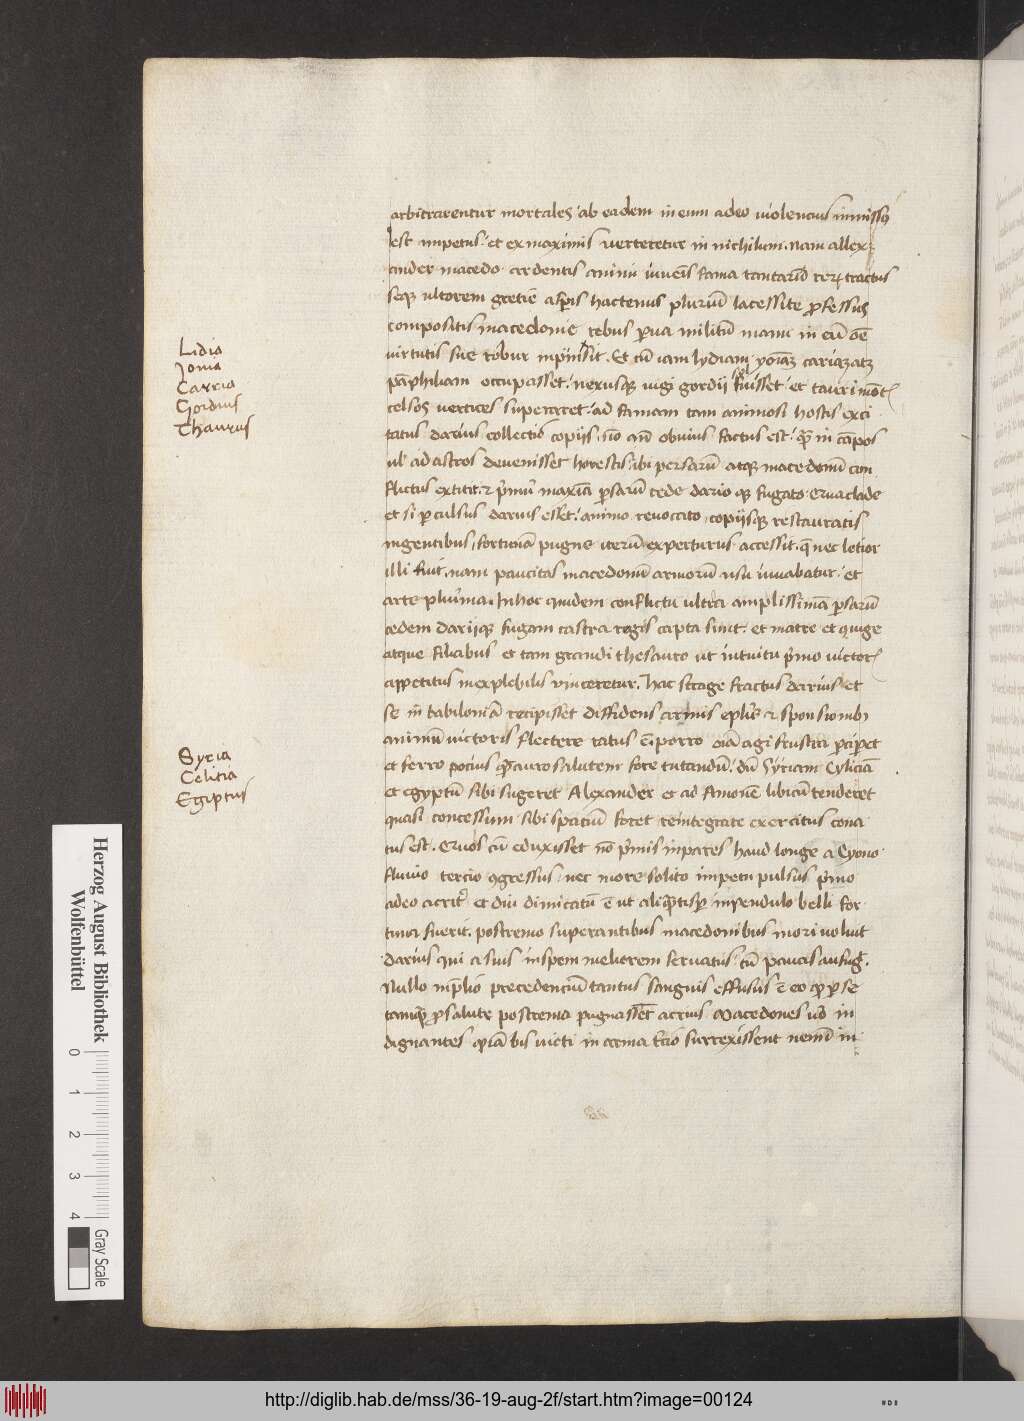 arbitrarentur mortales ab eadem in eum adeo violencius inmissus
est impetus: et ex maximis verteretur in nichilum. nam allex
ander macedo credentis animi iuvenis fama tantarum rerum tractus
seque ultorem gretie a persis hactenus plurium lacessite professus
compositis macedonie rebus parva militum manu in eum omne
virtutis sue robur inpinsit. Et cum iam lydiam yoniam cariam atque
Lidia
Jonia
Carria
Gordius
Thaurus
pamphiliam occupasset: nexusque iugi gordii soluisset: et tauri mont
celsos vertices superaret: ad famam tam animosi hostis exci
tatus darius collectis copiis suo cum obvius factus est: quem in campos
ubi adastros devenisset horestis: ibi persarum atque macedonum con
flictus extitit. et primum maxima persarum cede dario que fugato. Qua clade
et si perculsus darius esset: animo revoccato copiisque restauratis
ingentibus, fortunam pugne iterum experturus accessit. que nec letior
illi fuit. nam paucitas macedonum armorum usu iuvabatur: et
arte plurima. In hoc quidem conflictu ultra amplissimam persarum
cedem dariique fugam castra regis capta sunt: et matre et coniuge
atque filiabus et tam grandi thesauro ut intuitu primo victor
appetitus inexplebilis vinceretur. hac strage fractus darius et
se in babiloniam recipisset diffidens armis eplis et sponsionibus
animum victoris flectere ratus est porro omnia agi frustra perciperet
et ferro potius quam auro salutem fore tutandum: dum Syriam Cyliciam
Syria
Celicia
Egiptus
et egyptum sibi sugeret Alexander et ad Amonem libicum tenderet
quasi concessum sibi spatium foret reintegrare exercitus cona
tus est. Quos cum eduxisset non primis inpares haud longe a Cyono
fluvio tercio congressus: nec more solito impetu pulsus primo
adeo acriter et diu dimicatum est ut aliquantisper inpendulo belli for
tuna fuerit. postremo superantibus macedonibus mori voluit
darius qui a suis in spem meliorem servatus: cum paucis aufugit.
Nullo in prelio precedencium tantus sanguis effusus est eo quod per se
tamquam pro salute postrema pugnasset acrius Macedones ubi in
dignantes quia bis victi in arma tercio surrexissent nemini in
Herzog August Bibliothek
Wolfenbüttel
0 1 2 3 4
Gray Scale
http://diglib.hab.de/mss/36-19-aug-2f/start.htm?image=00124